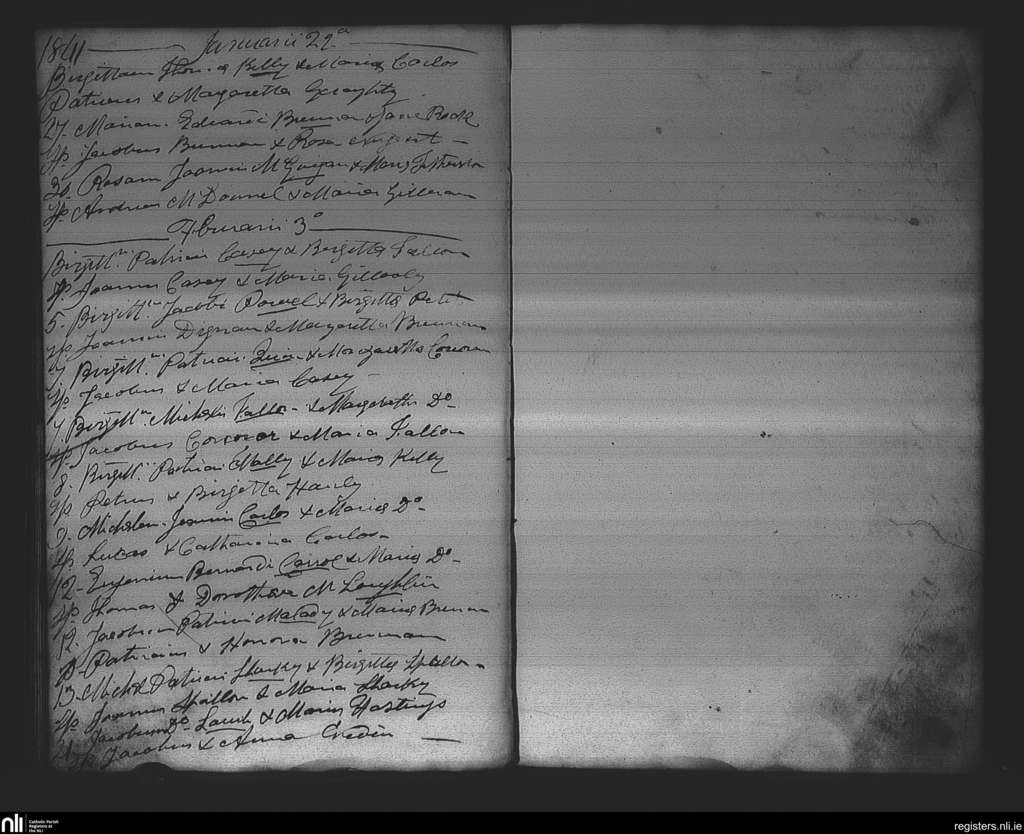 1841 Januarii 29a
Birgittam Thomae Kelly & Maria Carlos
Patricius & Margaretta Geraghty
27. Mariam. Edvardi Brennan & Jane Rock
Sp. Jacobus Brennan & Rosa Nugent
30. Rosam Joannis McGuigan & Maria
Sp. Andreas McDonnel & Maria Gilleran
Februarii 3o
Birgittm. Patricii Casey & Birgitta Fallon
Sp. Joannes Casey & Maria Gillooly
5. Birgittm. Jacobi & Birgitta
Sp. Joannes Dignan & Margaretta Brennan
7 Birgittm. Patricii Quin & Margaretta Corcoran
Sp. Jacobus & Maria Casey
7. Birgittm. Michaelis Fallon & Margaretta Do
Sp. Jacobus Corcoran & Maria Fallon
8. Birgittm. Patricii Mally & Maria Kelly
Sp. Petrus & Birgitta Hanly
9. Michalem. Joannis Carlos & Maria Do
Sp. Lucas & Catharina Carlos
12. Eugenium Bernardi Carrol & Maria Do
Sp. Thomas & Dorothea McLoughlin
12. Jacobum Patricii Malady & Maria Brennan
Sp. Patricius & Honora Brennan
13. Michl Patricii Sharky & Birgitta
Sp. Joannes & Maria Sharky
Jacobum & Maria Hastings
Sp. Jacobus & Anna
nli
Catholic Parish
Registers at
the NLI
registers.nli.ie